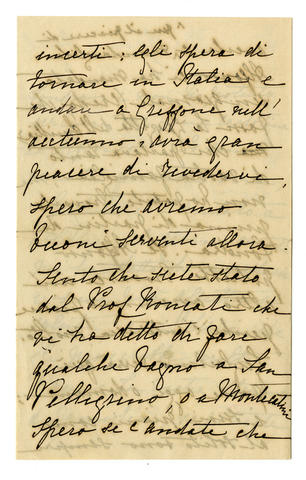 incerti; egli spera di
tornare in Italia e
andare a Griffone nell'
autunno, avrà gran
piacere di rivedervi,
spero che avremo
buoni serventi allora.
Sento che siete stato
dal Prof Roncati che
vi ha detto di fare
qualche bagno a San
Pellegrino, o a Montecatini
Spero se c'andate che